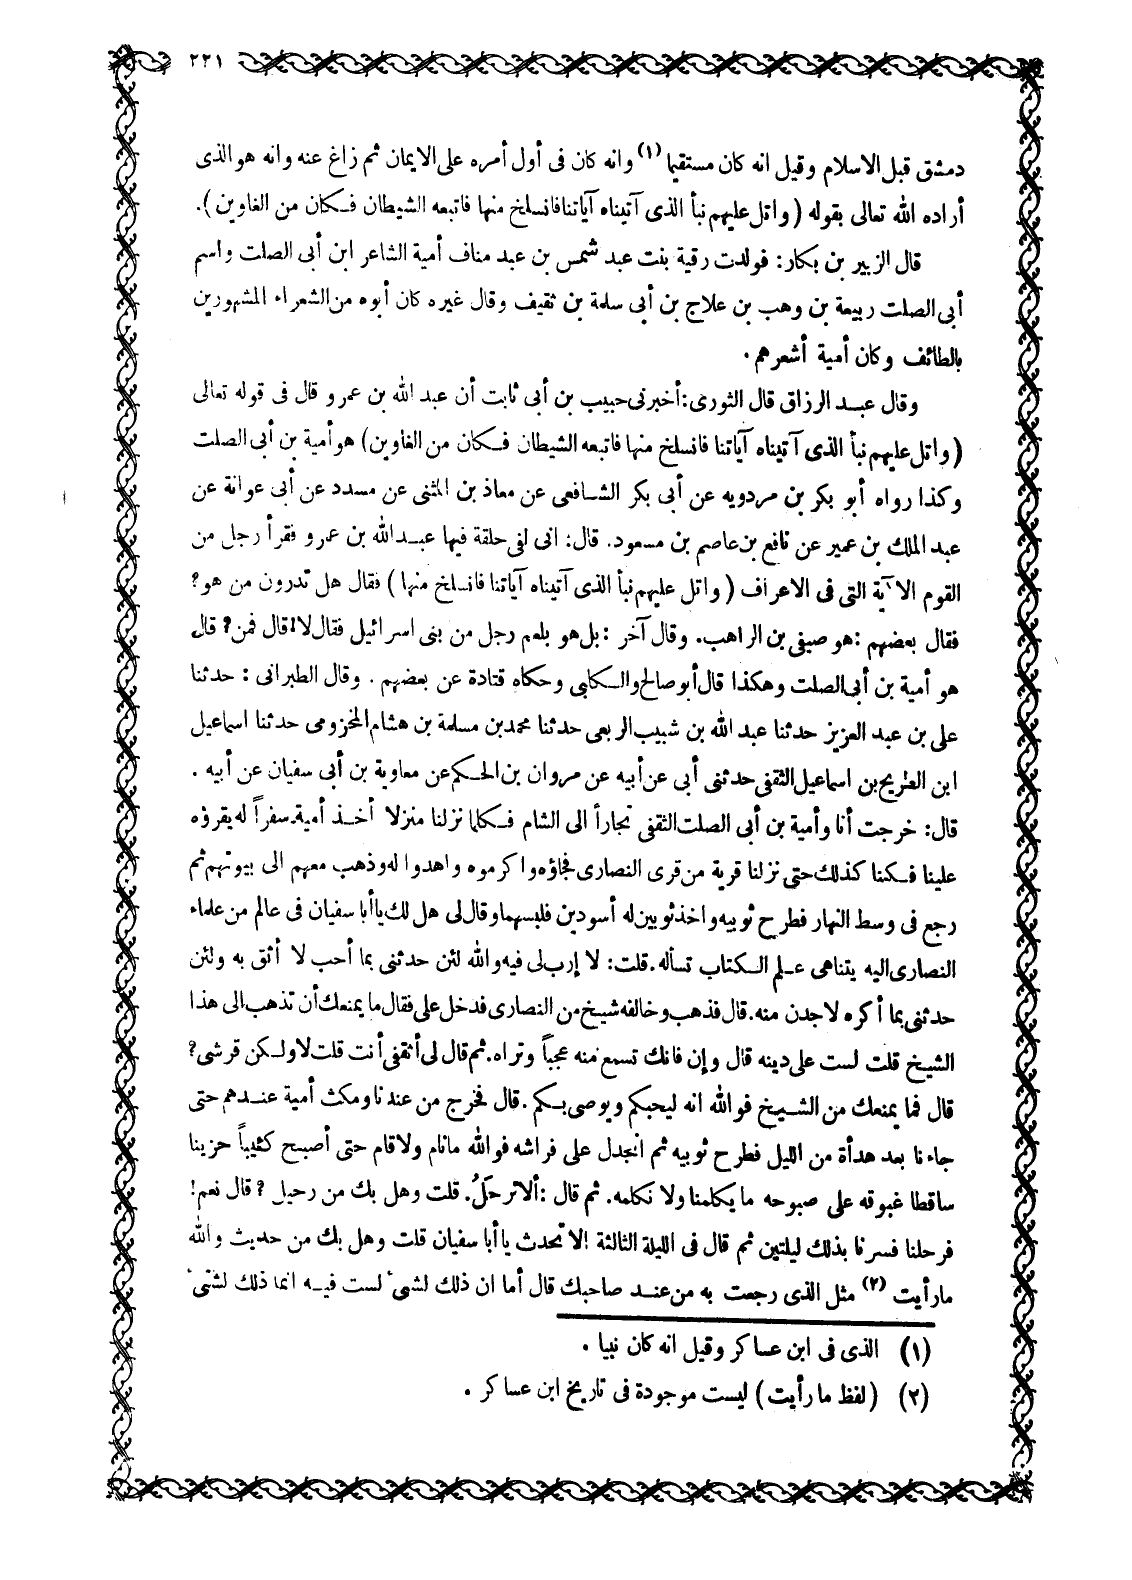 ٢٢١
دمشق قبل الاسلام وقيل انه كان مستقيما (١) وانه كان فى أول أمره على الايمان ثم زاغ عنه وانه هو الذى
أراده الله تعالى بقوله ( واتل عليهم نبأ الذى آتيناه آياتنا فانسلخ منها فاتبعه الشيطان فكان من الغاوين ).
قال الزبير بن بكار: فولدت رقية بنت عبد شمس بن عبد مناف أمية الشاعر ابن أبى الصلت واسم
أبى الصلت ربيعة بن وهب بن علاج بن أبى سلمة بن ثقيف وقال غيره كان أبوه من الشعراء المشهورين
بالطائف وكان أمية أشعرهم .
وقال عبد الرزاق قال الثورى: أخبرنى حبيب بن أبى ثابت أن عبد الله بن عمرو قال فى قوله تعالى
( واتل عليهم نبأ الذى آتيناه آياتنا فانسلخ منها فاتبعه الشيطان فكان من الغاوين) هو أمية بن أبى الصلت
وكذا رواه أبو بكر بن مردويه عن أبى بكر الشافعى عن معاذ بن المثنى عن مسدد عن أبى عوانة عن
عبد الملك بن عمير عن نافع بن عاصم بن مسعود. قال: انى لفى حلقة فيها عبد الله بن عمرو فقرأ رجل من
القوم الآية التى فى الاعراف ( واتل عليهم نبأ الذى آتيناه آياتنا فانسلخ منها ) فقال هل تدرون من هو؟
فقال بعضهم : هو صيفى بن الراهب. وقال آخر : بل هو بلعم رجل من بنى اسرائيل فقال لا! قال فمن؟ قال
هو أمية بن أبى الصلت وهكذا قال أبو صالح والكلبى وحكاه قتادة عن بعضهم . وقال الطبرانى : حدثنا
على بن عبد العزيز حدثنا عبد الله بن شبيب الربعى حدثنا محمد بن مسلمة بن هشام المخزومى حدثنا اسماعيل
ابن الطريح بن اسماعيل الثقفى حدثنى أبى عن أبيه عن مروان بن الحكم عن معاوية بن أبى سفيان عن أبيه .
قال: خرجت أنا وأمية بن أبى الصلت الثقفى تجاراً الى الشام فكلما نزلنا منزلا أخذ أمية سفراً له يقرؤه
علينا فكنا كذلك حتى نزلنا قرية من قرى النصارى فجاؤه واكرموه واهدوا له وذهب معهم الى بيوتهم ثم
رجع فى وسط النهار فطرح ثوبيه واخذ ثوبين له أسودين فلبسهما وقال لى هل لك يا أبا سفيان فى عالم من علماء
النصارى اليه يتناهى علم الكتاب تسأله. قلت: لا إرب لى فيه والله لئن حدثنى بما أحب لا أثق به ولئن
حدثنى بما أكره لاجدن منه. قال فذهب وخالفه شيخ من النصارى فدخل على فقال ما يمنعك أن تذهب الى هذا
الشيخ قلت لست على دينه قال وإن فانك تسمع منه عجباً وتراه. ثم قال لى أثقفى أنت قلت لا ولكن قرشى؟
قال فما يمنعك من الشيخ فوالله انه ليحبكم ويوصى بكم . قال فخرج من عندنا ومكث أمية عندهم حتى
جاءنا بعد هدأة من الليل فطرح ثوبيه ثم انجدل على فراشه فوالله ما نام ولا قام حتى أصبح كئيباً حزينا
ساقطا غبوقه على صبوحه ما يكلمنا ولا نكلمه. ثم قال : ألا ترحلُ. قلت وهل بك من رحيل ؟ قال نعم!
فرحلنا فسرنا بذلك ليلتين ثم قال فى الليلة الثالثة الا تحدث يا أبا سفيان قلت وهل بك من حديث والله
ما رأيت (٢) مثل الذى رجعت به من عند صاحبك قال أما ان ذلك لشىء لست فيه انما ذلك لشىء
(١) الذى فى ابن عساكر وقيل انه كان نبيا .
(٢) (لفظ ما رأيت) ليست موجودة فى تاريخ ابن عساكر .